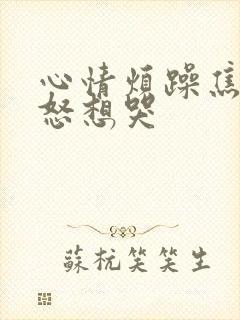 心情烦躁焦
怒想哭
蘇杭笑笑生